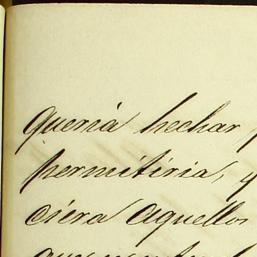 queria hechar
permitiria, y
ciera aquellos